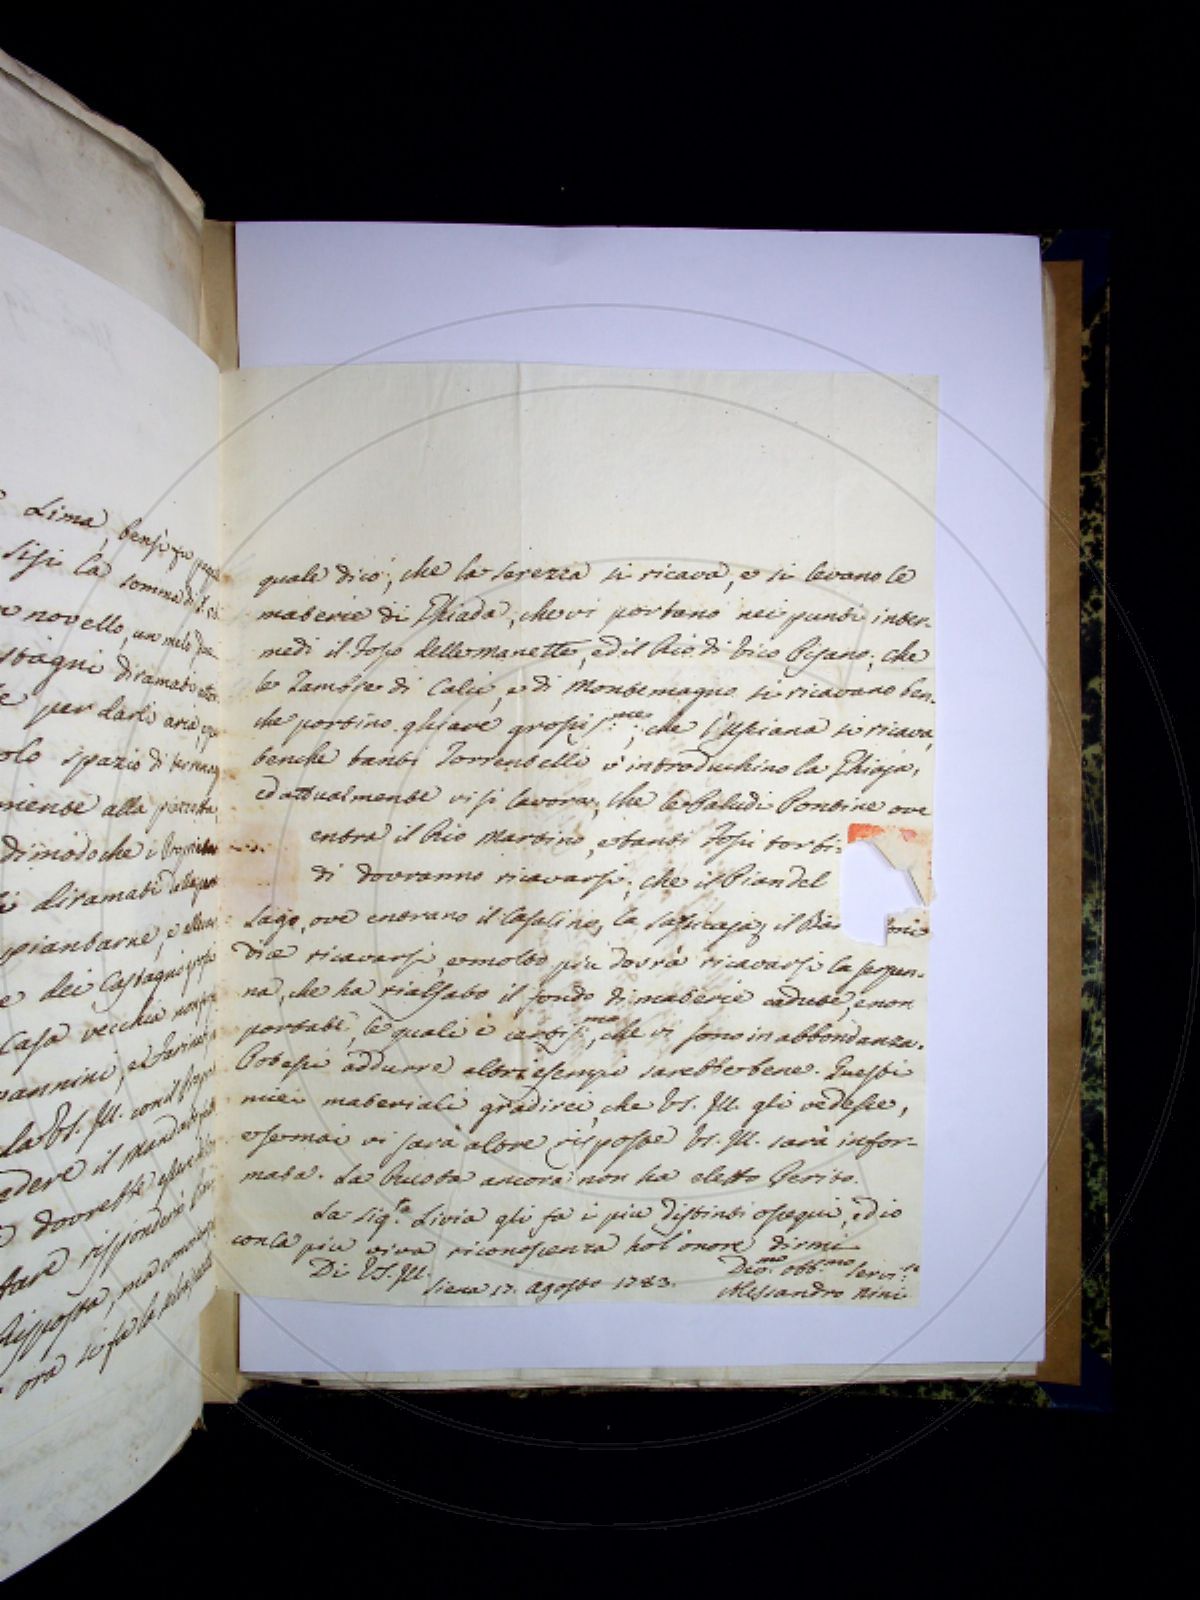 Lima, bensì fu
Sisi la somma di
novello, un melo
stagni diramati
per darli aria,
olo spazio di terreno
niente alla
di modo che i
diramati alla
piantarne, e
e dei Castagni
Casa vecchia non
annini, e
la VS. Ill. con il
edere il
dovrette
fare rispondere
Risposta, ma
ora si fa la
quale dico, che la Serezza si ricava, e si levano le
materie di Ghiada, che vi portano nei punti inter-
medi il Fosso delle Manette, ed il Rio di Vico Pisano; che
le Zambre di Calci, e di Montemagno si ricavano ben-
che portino ghiare grossis.me; che l'Usciana si ricava,
benche tanti Torrentelli v'introduchino la Ghiaja,
ed attualmente vi si lavora; che le Paludi Pontine ove
entra il Rio Martino, e tanti Fossi torbi-
di dovranno ricavarsi; che il Pian del
Lago, ove entrano il Casalino, la Sassicaja, il
die ricavarsi, e molto più dovrà ricavarsi la Serpen-
na, che ha rialsato il fondo di materie cadute, e non
portate, le quali è certiss.mo, che vi sono in abbondanza.
Potessi addurre altri esempi sarebbe bene. Questi
miei materiali gradirei, che VS. Ill. gli vedesse,
e se mai vi sarà altre risposte VS. Ill. sarà infor-
mata. La Ruota ancora non ha eletto Perito.
La Sig.ra Livia gli fa i più distinti ossequi, ed io
con la più viva riconoscenza ho l'onore dirmi
Di VS. Ill.
Siena 17. Agosto 1783.
Dev.mo obb.mo Servi.re
Alessandro Nini